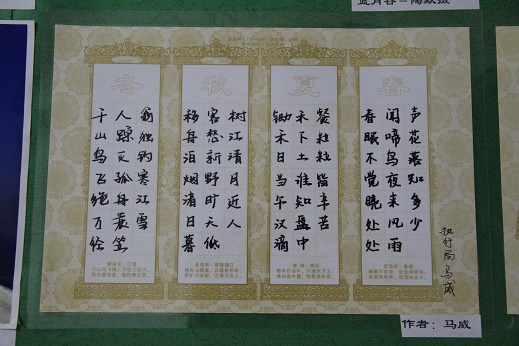 春
春眠不觉晓处处
闻啼鸟夜来风雨
声花落知多少
夏
锄禾日当午汉滴
禾下土谁知盘中
餐粒粒皆辛苦
秋
移舟泊烟渚日暮
客愁新野旷天低
树江清月近人
冬
千山鸟飞绝万径
人踪灭孤舟蓑笠
翁独钓寒江雪
执行局马威
作者：马威